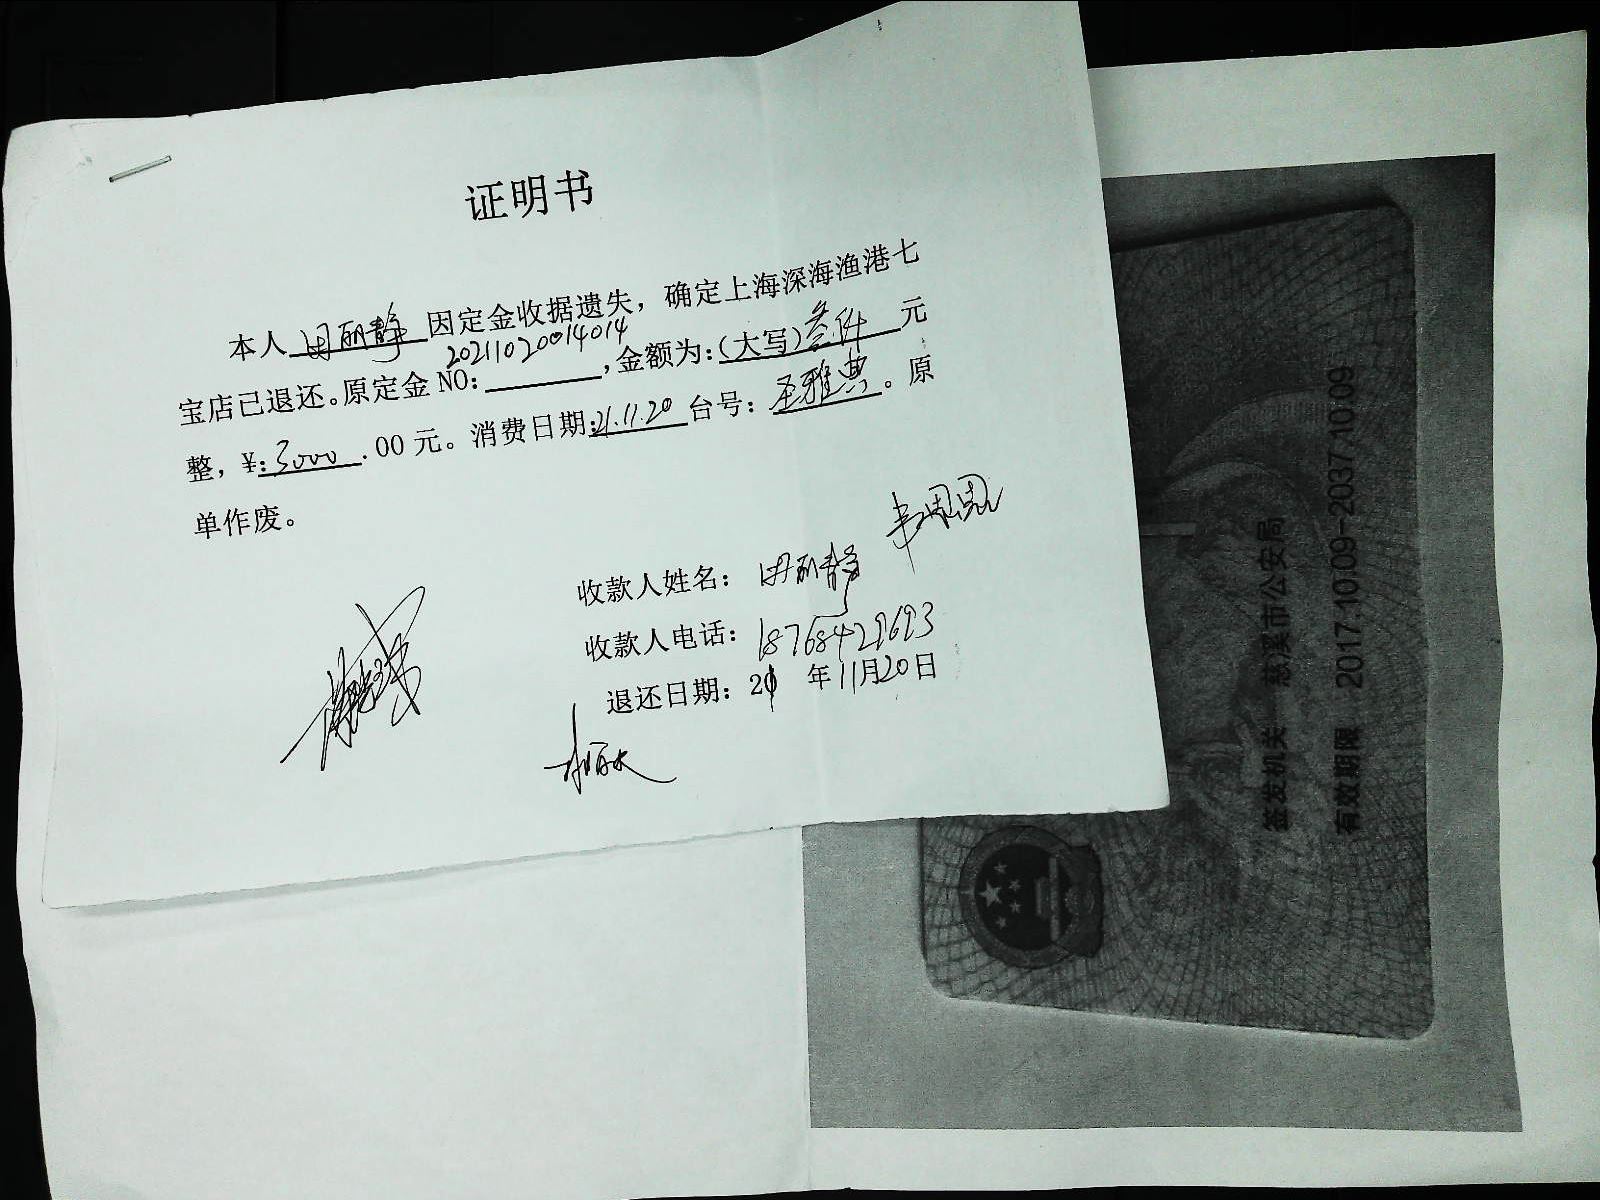 证明书
本人 田丽静 因定金收据遗失，确定上海深海渔港七
宝店已退还。原定金NO: 20211020014014 ,金额为:(大写)叁仟 元
整，¥: 3000 .00 元。消费日期: 21.11.20 台号: 圣雅典 。原
单作废。
收款人姓名: 田丽静
收款人电话: 18768429693
退还日期: 21 年 11月20日
签发机关 慈溪市公安局
有效期限 2017.10.09-2037.10.09